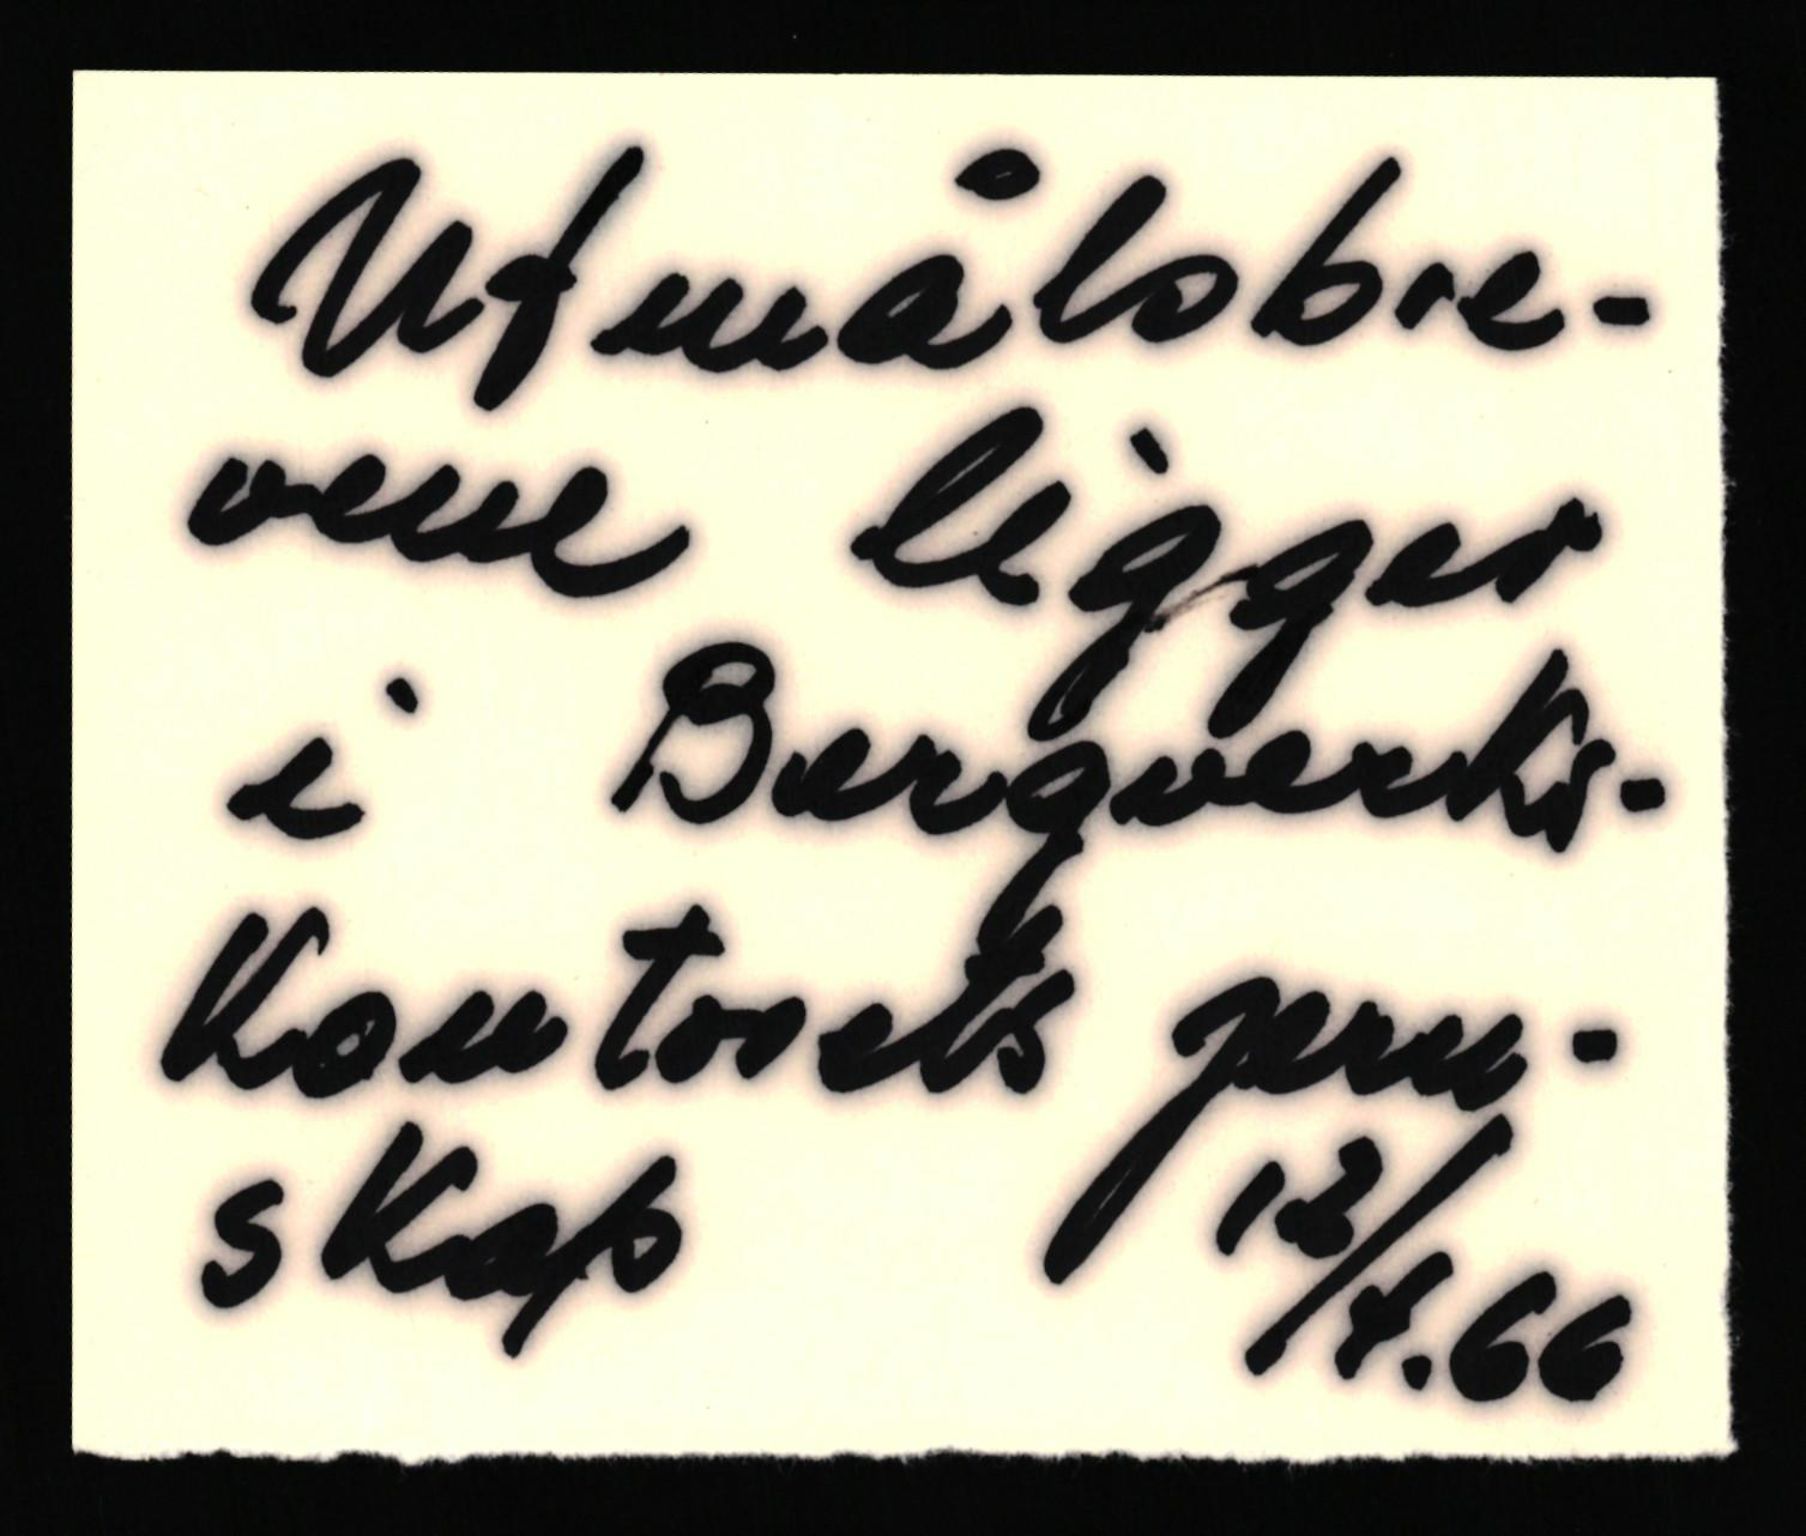 Utmålsbre-
vene ligger
i Bergverks-
Kontorets jern-
skap 12/8.66